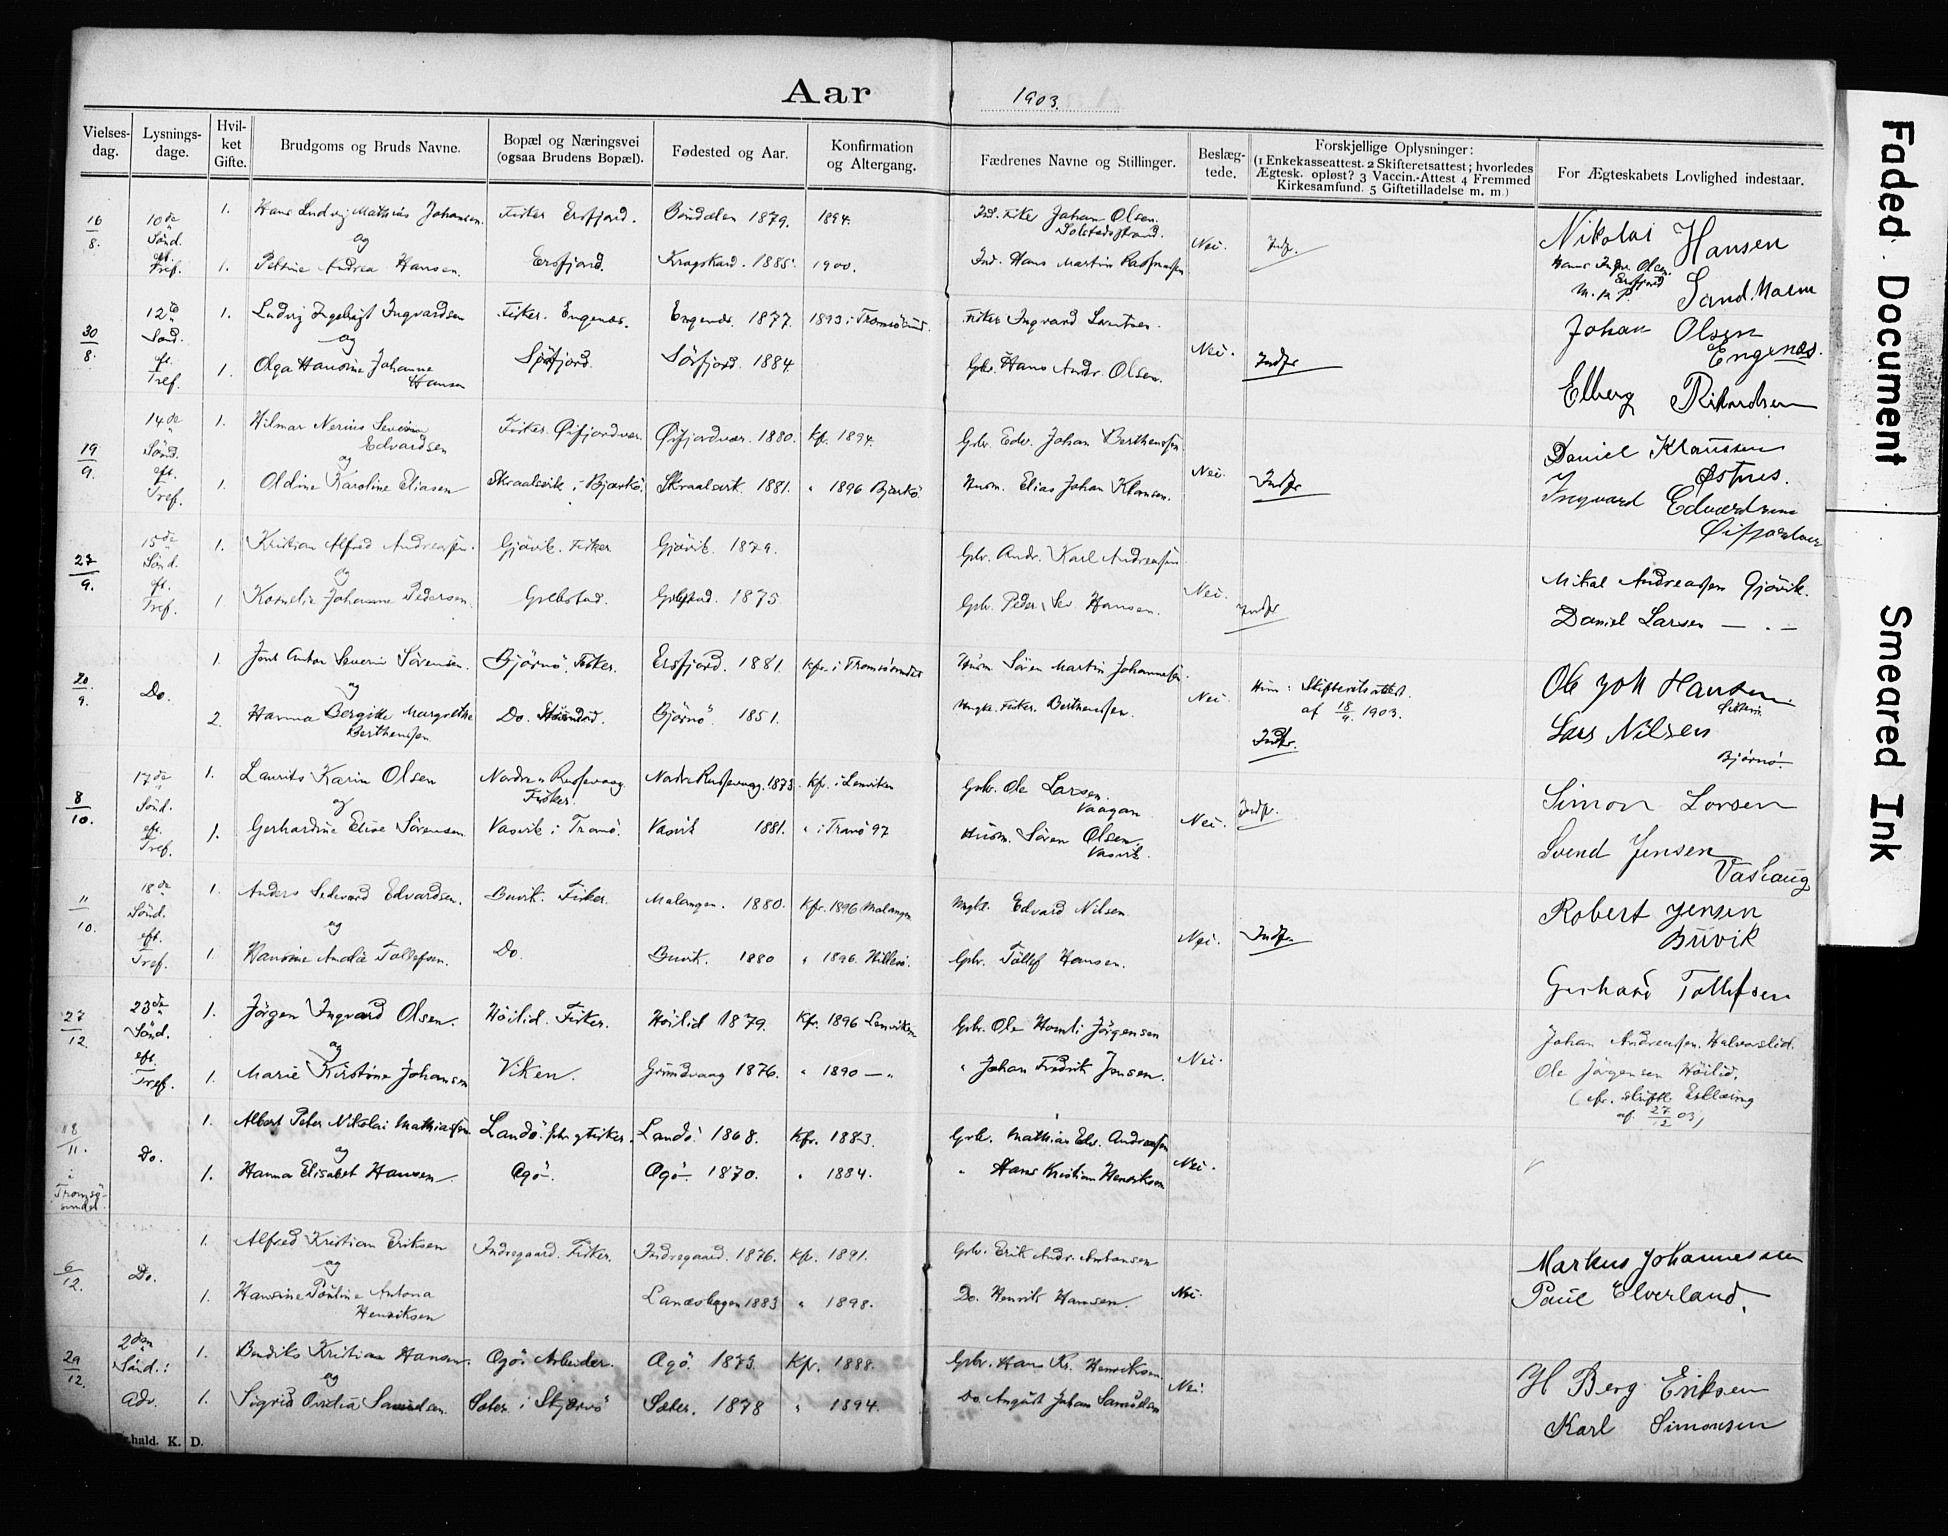 Aar 1903.
Vielses-dag. Lysnings-dage. Hvil-ket Gifte. Brudgoms og Bruds Navne. Bopæl og Næringsvei (ogsaa Brudens Bopæl). Fødested og Aar. Konfirmation og Altergang. Fædrenes Navne og Stillinger. Beslæg-tede. Forskjellige Oplysninger: (1 Enkekasseattest. 2 Skifteretsattest; hvorledes Ægtesk. opløst? 3 Vaccin.-Attest 4 Fremmed Kirkesamfund. 5 Giftetilladelse m. m.) For Ægteskabets Lovlighed indestaar.
16/8. 10de Sønd. eft. Tref. 1. Hans Ludvig Mathias Johansen. Fisker Ersfjord. 1879. 1894. Ind. Fisker Johan Olsen. Nikolai Hansen
og
1. Petrine Andrea Hansen. Ersfjord. Kragskard. 1885. 1900. Ind. Hans Martin Nei. Indfr. Hans Ingv. Olsen. Ersfjord
30/8. 12te Sønd. eft. Tref. 1. Ludvig Ingebrigt Ingvardsen Fisker. Engenes. Engenes. 1877. 1893 i Tromsøsund. Fisker Ingvard Johan Olsen Engenæs.
og
1. Olga Hansine Johanne Hansen Sørfjord. Sørfjord. 1884 Gbr. Hans Andr. Olsen. Nei. Indfr Elberg Rikardsen
19/9. 14de Sønd. eft. Tref. 1. Hilmar Nerius Severin Edvardsen Fisker. Øifjordvær. Øifjordvær. 1880. Kf. 1894. Gbr. Edv. Johan Berthensen Daniel Klaussen Østnes.
og
1. Oldine Karoline Eliasen Skraalsvik i Bjarkø. Skraalsvik. 1881. " 1896 Bjarkø Husm. Elias Johan Klausen. Nei. Indfr Ingvard Edvardsen Øifjordvær
27/9. 15de Sønd. eft. Tref. 1. Kristian Alfred Andreassen. Gjøvik. Fisker Gjøvik. 1879. Gbr. Andr. Karl Andreassen Mikal Andreassen Gjøvik.
og
1 Kornelie Johanne Pedersen. Grebstad. Grebstad. 1875 Gbr. Peder Sev. Hansen. Nei. Indfr Daniel Larsen — . —
20/9. Do. 1. Jens Anton Severin Sørensen. Bjørnø. Fisker. Ersfjord. 1881. Kfr. i Tromsøsundet Husm Søren Martin Johannesen. Ole Joh Hansen.
og
2. Hanna Bergitte Margrethe Berthensen Do. Bjørnø. 1851. Ungk. Fisker. Berthensen. Nei. Skifteretsattest. af 18/9. 1903. Indfr. Lars Nilsen Bjørnø.
8/10. 17de Sønd. eft. Tref. 1. Laurits Karin Olsen Nordre Russevaag Fisker. Nordre Russevaag. 1873. Kfr. i Lenviken Gbr. Ole Larsen. Vaagan Simon Lorsen
og
1. Gerhardine Elise Sørensen. Vasvik i Tranø. Vasvik 1881. " i Tranø 97 Husm. Søren Olsen. Vasvik. Nei. Indfr. Svend Jensen
11/10. 18de Sønd. eft. Tref. 1. Anders Edvardsen. Buvik. Fisker. Malangen. 1880. Kfr. 1896 Malangen Ungk. Edvard Nilsen Robert Jensen Buvik
og
1. Hansine Tollefsen. Do. Buvik. 1880 " 1896. Hillesø. Gbr. Tollef Hansen. Nei. Indfr. Gerhard Tollefsen
27/12 23de Sønd. eft. Tref. 1. Jørgen Ingvard Olsen. Høilid. Fisker. Høilid 1879. Kfr. 1896 Lenviken Gbr. Ole Jørgensen Johan Andreassen. Halvarslid.
og
1. Marie Kirstine Johansen Viken. Grundvaag 1876. " 1890 — " " Johan Fredrik Jensen. Nei. Ole Jørgensen Høilid.
(cfr. skriftl Erklæring af 27/12 03)
18/11. i Tromsøsundet Do. 1. Albert Peter Nikolai Mathiassen Landø. gbr og Fisker. Landø. 1868. Kfr. 1883. Gbr. Mathias Edv. Andreassen
og
1. Hanna Elisabet Hansen Ogø Ogø. 1870. " 1884. " Hans Kristian Henriksen Nei.
6/12. Do. 1. Alfred Kristian Eriksen Indregaard. Fisker. Indregaard. 1876. Kfr. 1891. Gbr. Erik Andr. Antonsen Markus Johannessen
og
1. Hansine Pouline Antona Henriksen 1883 " 1898. Do. Henrik Hansen. Nei. Paul Elverland.
29/12. 2den Sønd. i Adv. 1. Bendiks Kristian Hansen. Ogø. Arbeider. Ogø. 1873. Kfr. 1888. Gbr. Hans Kr. Henriksen H Berg Eriksen
og
1. Sigrid Ovidia Samuelsen Sæter i Skjærvø Sæter. 1878 " 1894. Do. August Johan Samuelsen Nei. Karl Simonsen
hald. K. D.
Faded Document Smeared Ink